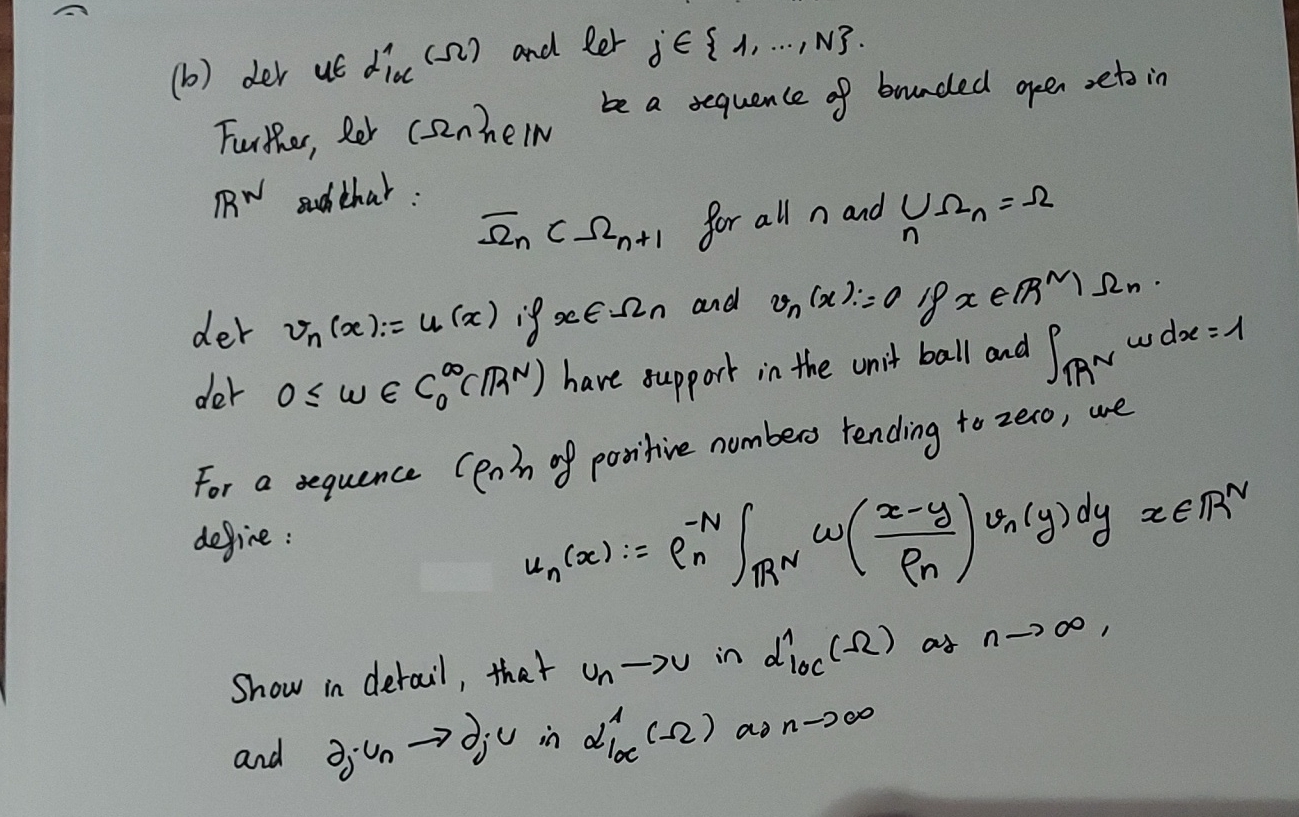 (b) Let u∈ L¹loc (Ω) and let j∈{1, ..., N}.
Further, let (Ωn)n∈ℕ be a sequence of bounded open sets in
ℝᴺ such that :
Ω̅n ⊂ Ωn+1 for all n and ∪n Ωn = Ω
Let vn(x):= u(x) if x∈Ωn and vn(x):=0 if x∈ℝᴺ\Ωn.
Let 0≤ω∈C₀^∞(ℝᴺ) have support in the unit ball and ∫ℝᴺ ω dx=1
For a sequence (ρn)n of positive numbers tending to zero, we
define :
un(x) := ρn^-N ∫ℝᴺ ω((x-y)/ρn) vn(y)dy x∈ℝᴺ
Show in detail, that un→u in L¹loc(Ω) as n→∞,
and ∂jun→∂ju in L¹loc(Ω) as n→∞